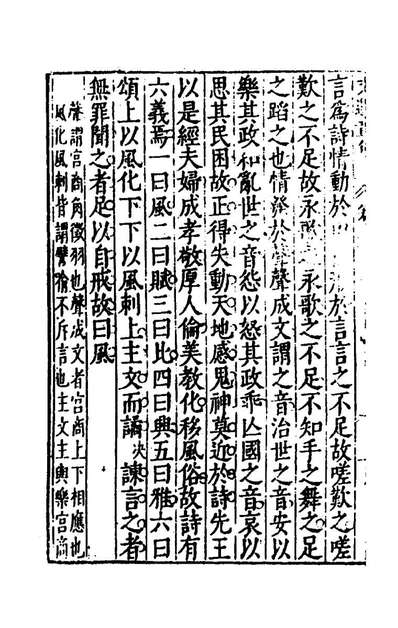 言爲詩情動於中形於言言之不足故嗟歎之嗟
歎之不足故永歌之永歌之不足不知手之舞之足
之蹈之也情發於聲聲成文謂之音治世之音安以
樂其政和亂世之音怨以怒其政乖亾國之音哀以
思其民困故正得失動天地感鬼神莫近於詩先王
以是經夫婦成孝敬厚人倫美教化移風俗故詩有
六義焉一曰風二曰賦三曰比四曰興五曰雅六曰
頌上以風化下下以風刺上主文而譎決諫言之者
無罪聞之者足以自戒故曰風
聲謂宮商角徵羽也聲成文者宮商上下相應也
風化風刺皆謂譬喻不斥言也主文主與樂宮商